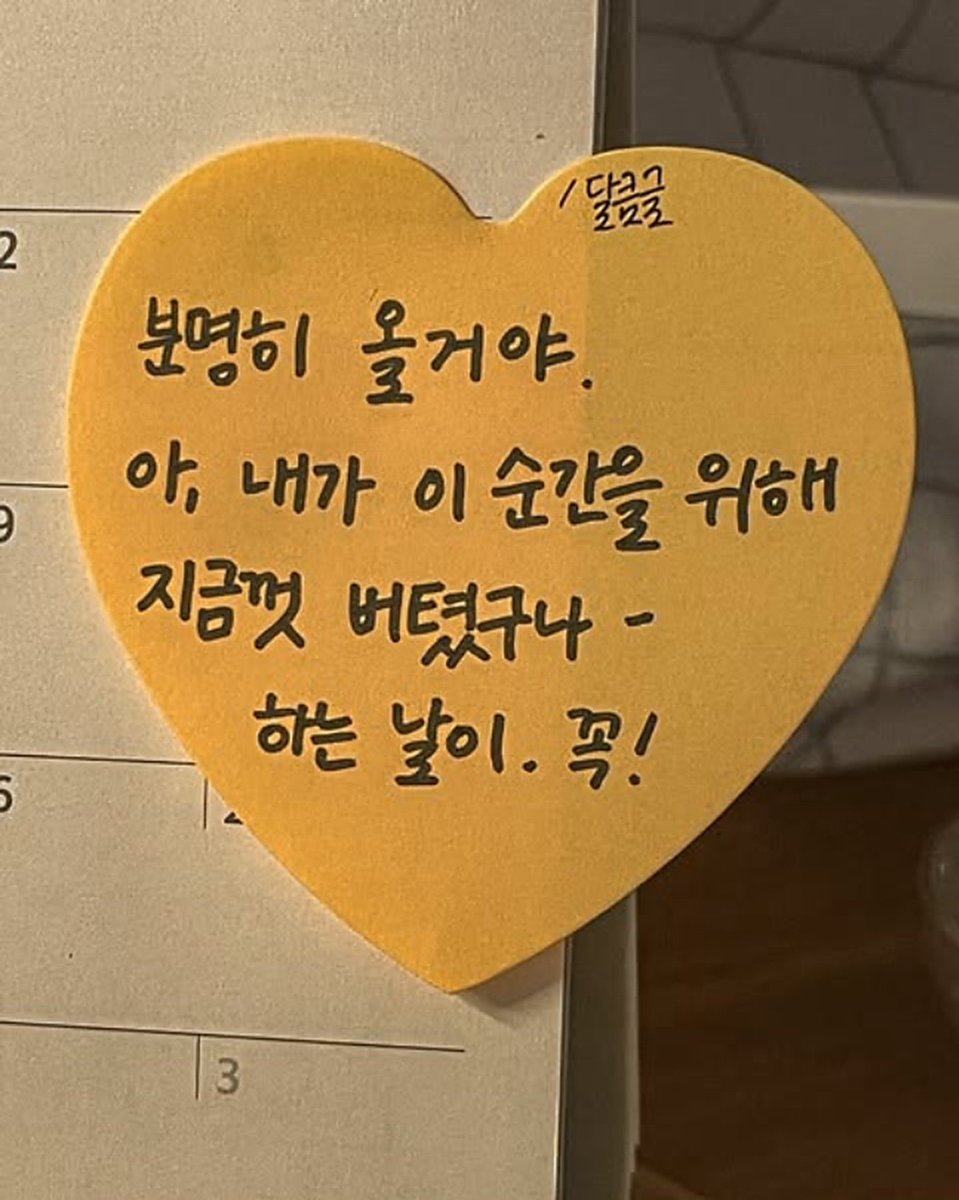 /달콤글
2
분명히 올거야.
아, 내가 이 순간을 위해
9
지금껏 버텼구나 -
하는 날이. 꼭!
6
3